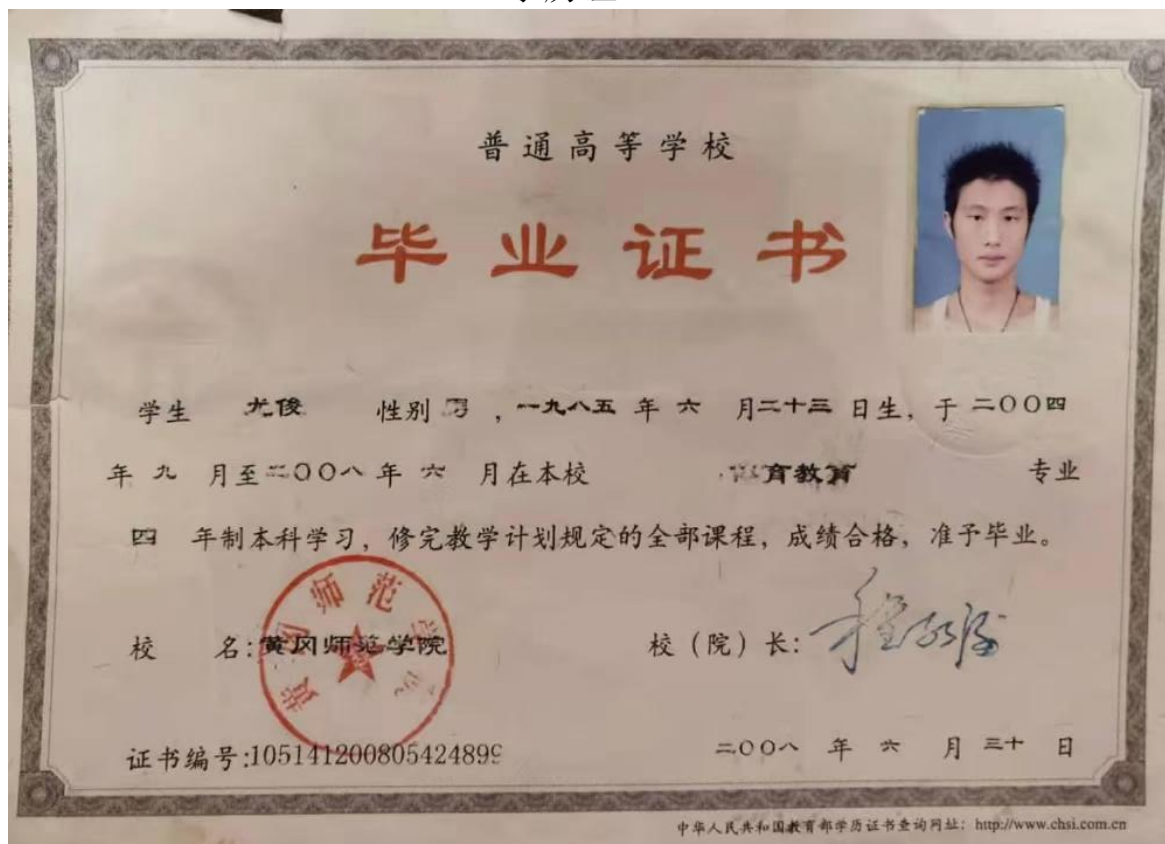 普通高等学校
毕业证书
学生 尤俊 性别 男，一九八五年六月二十三日生，于二〇〇四
年九月至二〇〇八年六月在本校 体育教育 专业
四年制本科学习，修完教学计划规定的全部课程，成绩合格，准予毕业。
校 名：黄冈师范学院 校（院）长：
黄冈师范学院
证书编号：105141200805424899 二〇〇八年六月三十日
中华人民共和国教育部学历证书查询网址：http://www.chsi.com.cn